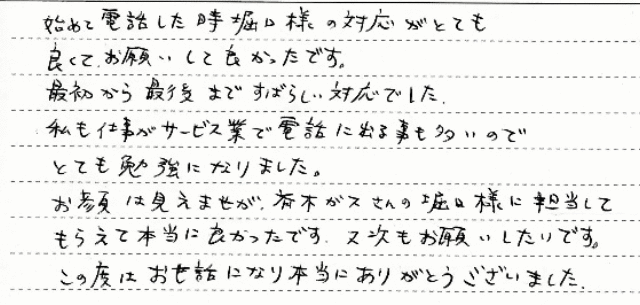 始めて電話した時堀口様の対応がとても
良くて、お願いして良かったです。
最初から最後まですばらしい対応でした。
私も仕事がサービス業で電話に出る事も多いので
とても勉強になりました。
お顔は見えませが、斉木ガスさんの堀口様に担当して
もらえて本当に良かったです。又次もお願いしたいです。
この度はお世話になり本当にありがとうございました。